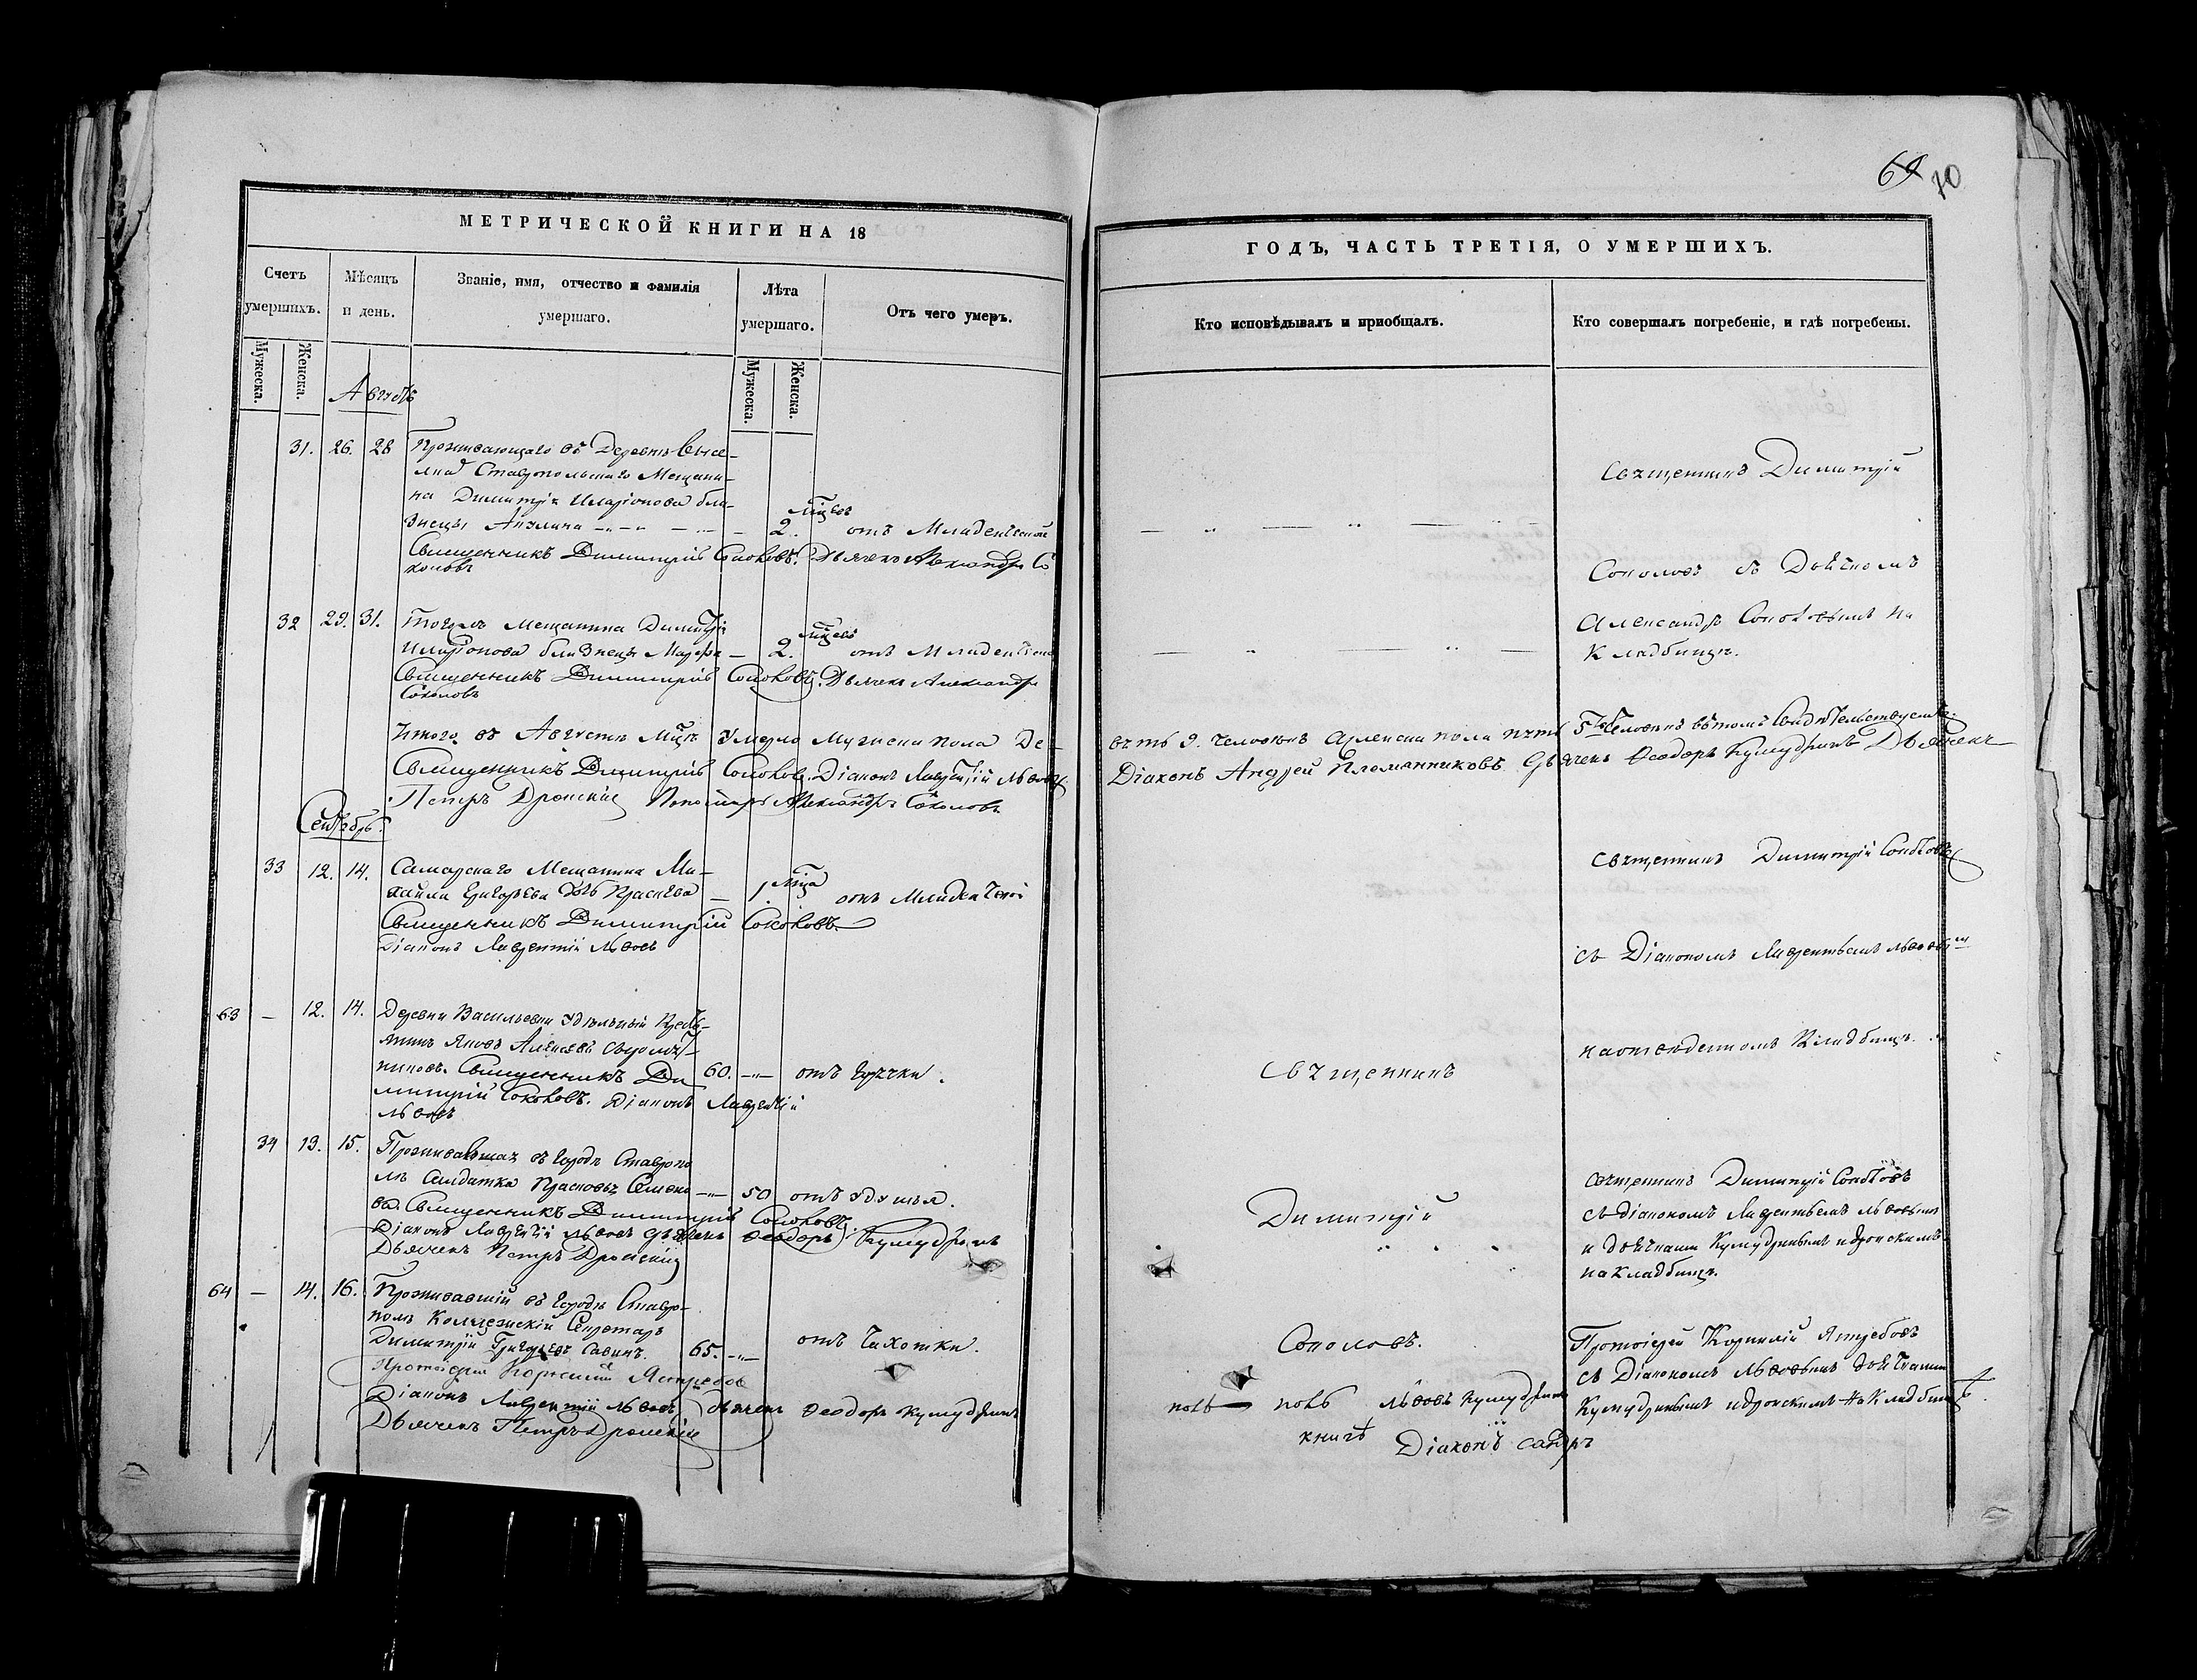 69 70
МЕТРИЧЕСКОЙ КНИГИ НА 18
Счетъ умершихъ.
Мужеска.
Женска.
Мѣсяцъ и день.
Званіе, имя, отчество и фамилія умершаго.
Лѣта умершаго.
Мужеска.
Женска.
Отъ чего умеръ.
Августъ
31. 26. 28 Проживающаго въ Деревнѣ Высе-
лкѣ Ставропольскаго Мещани-
на Димитрія Иларіонова бли-
знецы 2. мцевъ отъ Младенческой
Священникъ Димитрій Соколовъ. Дьячекъ Александръ Со
коловъ
32 29. 31. Тогожъ Мещанина Димитрія
Иларіонова близнецы 2. мцевъ отъ Младенческой
Священникъ Димитрій Соколовъ. Дьячекъ Александръ
Соколовъ
Итого въ Августѣ Мцѣ Умерло Мужеска пола Де-
Священникъ Димитрій Соколовъ. Діаконъ Лаврентій Львовъ
Петръ Дронскій Пономарь Александръ Соколовъ
Сентябрь.
33 12. 14. Самарскаго Мещанина Ми-
хаила Григорьева дочь 1. мца отъ Младенческой
Священникъ Димитрій Соколовъ
Діаконъ Лаврентій Львовъ
63 — 12. 14. Деревни Васильевки Удѣльный Кресть-
янинъ Яковъ Алексѣевъ Сыромят-
никовъ. Священникъ Ди 60. отъ Горячки.
митрій Соколовъ. Діаконъ Лаврентій
Львовъ
34 13. 15. Проживавшая въ Городѣ Ставропо
лѣ Солдатка Прасковья Семено 50 отъ удушья.
ва. Священникъ Димитрій Соколовъ.
Діаконъ Лаврентій Львовъ Дьячекъ Ѳеодоръ Кумудринъ
Дьячекъ Петръ Дронскій
64 — 14. 16. Проживавшій въ Городѣ Ставро-
полѣ Коллежскій Секретарь
Димитрій Григорьевъ Савинъ. 65. отъ Чахотки.
Протоіерей Корнилій Ястребовъ
Діаконъ Лаврентій Львовъ Дьячекъ Ѳеодоръ Кумудринъ
Дьячекъ Петръ Дронскій
ГОДЪ, ЧАСТЬ ТРЕТІЯ, О УМЕРШИХЪ.
Кто исповѣдывалъ и пріобщалъ.
Кто совершалъ погребеніе, и гдѣ погребены.
Священникъ Димитрій
Соколовъ съ Дьячкомъ
Александромъ Соколовымъ на
Кладбищѣ.
вять 9. человѣкъ а женска пола пять 5ть Человѣкъ въ томъ Свидѣтельствуемъ
Діаконъ Андрей Племянниковъ Дьячекъ Ѳеодоръ Кумудринъ Дьячекъ
Священникъ Димитрій Соколовъ
съ Діакономъ Лаврентьемъ Львовымъ
на отведенномъ Кладбищѣ.
Священникъ
Димитрій
Соколовъ.
Священникъ Димитрій Соколовъ
съ діакономъ Лаврентьемъ Львовымъ
и дьячками Кумудринымъ и Дронскимъ
на Кладбищѣ.
Протоіерей Корнилій Ястребовъ
съ Діакономъ Львовымъ дьячками
Кумудринымъ и Дронскимъ на Кладбищѣ.
Львовъ Кумудринъ
книгѣ Діаконъ